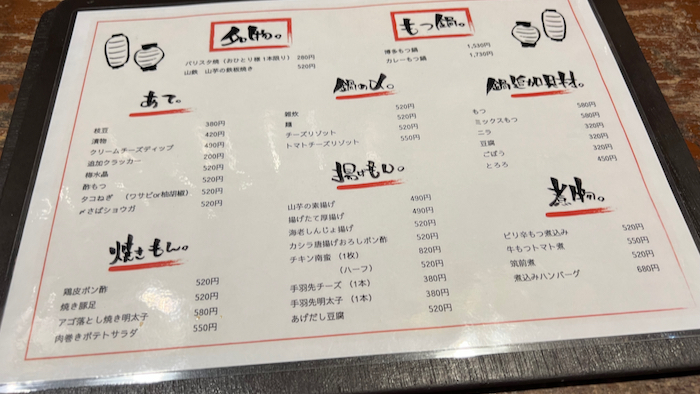 名物。
バリスタ焼（おひとり様1本限り） 280円
山鉄 山芋の鉄板焼き 520円
もつ鍋。
博多もつ鍋 1,530円
カレーもつ鍋 1,730円
あて。
枝豆 380円
漬物 420円
クリームチーズディップ 490円
追加クラッカー 200円
梅水晶 520円
酢もつ 520円
タコねぎ （ワサビor柚胡椒） 520円
〆さばショウガ 520円
鍋の〆。
雑炊 520円
麺 520円
チーズリゾット 520円
トマトチーズリゾット 550円
鍋追加具材。
もつ 580円
ミックスもつ 580円
ニラ 320円
豆腐 320円
ごぼう 320円
とろろ 450円
焼きもん。
鶏皮ポン酢 520円
焼き豚足 520円
アゴ落とし焼き明太子 580円
肉巻きポテトサラダ 550円
揚げもん。
山芋の素揚げ 490円
揚げたて厚揚げ 490円
海老しんじょ揚げ 520円
カシラ唐揚げおろしポン酢 520円
チキン南蛮 （1枚） 820円
（ハーフ） 520円
手羽先チーズ （1本） 380円
手羽先明太子 （1本） 380円
あげだし豆腐 520円
煮物。
ピリ辛もつ煮込み 520円
牛もつトマト煮 550円
筑前煮 520円
煮込みハンバーグ 680円